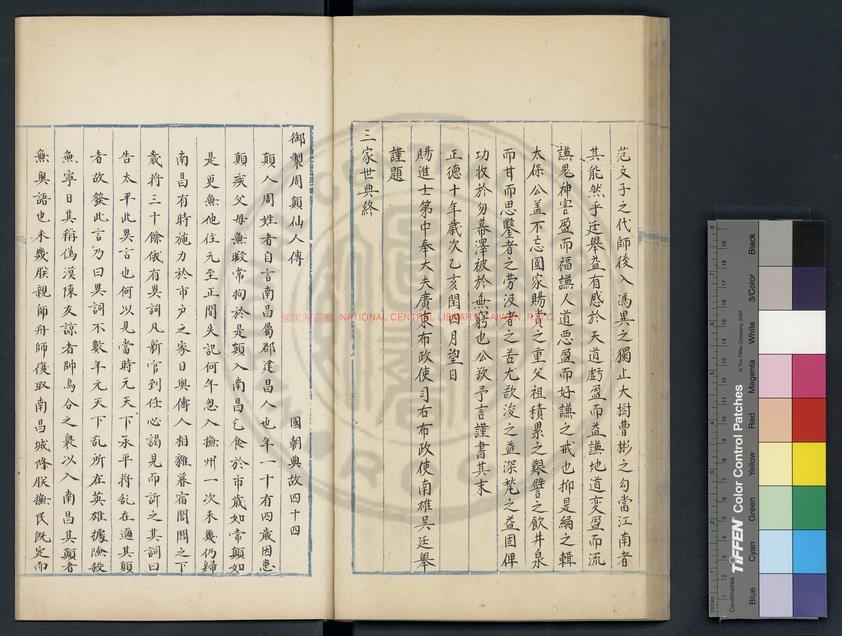 范文子之代師後入馮異之獨止大樹曹彬之勾當江南者
其能然乎廷舉益有感於天道虧盈而益謙地道変盈而流
謙鬼神害盈而福謙人道惡盈而好謙之戒也抑是編之輯
太保公盖不忘國家賜賚之重父祖積累之艱譬之飲井泉
而甘而思鑿者之劳汲者之苦尤欲浚之益深甃之益固俾
功收於勿幕澤被於無窮也公欻予言謹書其末
正德十年歲次乙亥閏四月望日
賜進士第中奉大夫廣東布政使司右布政使南雄吴廷舉
謹題
三家世典終
御製周顛仙人傳
國朝典故四十四
顛人周姓者自言南昌屬郡建昌人也年一十有四歲因患
顛疾父母無暇常拘於是顛入南昌乞食於市歲如常顛如
是更無他往元至正間失記何年忽入撫州一次未幾仍歸
南昌有時施力於市户之家日與傳人相雜暮宿閭閻之下
歲将三十餘俄有異詞凡新官到任必謁見而訴之其詞曰
告太平此異言也何以見當時元天下承平将乱在邇其顛
者故發此言乃曰異詞不數年元天下乱所在英雄據險殺
無寧日其稱偽漢陳友諒者帥烏合之衆以入南昌其顛者
無與語也未幾朕親帥舟師復取南昌城降朕撫民既定而
國家圖書館 NATIONAL CENTRAL LIBRARY, TAIWAN, R.O.C.
TIFFEN Color Control Patches
© The Tiffen Company, 2007
Centimetres
Inches
Blue
Cyan
Green
Yellow
Red
Magenta
White
3/Color
Black